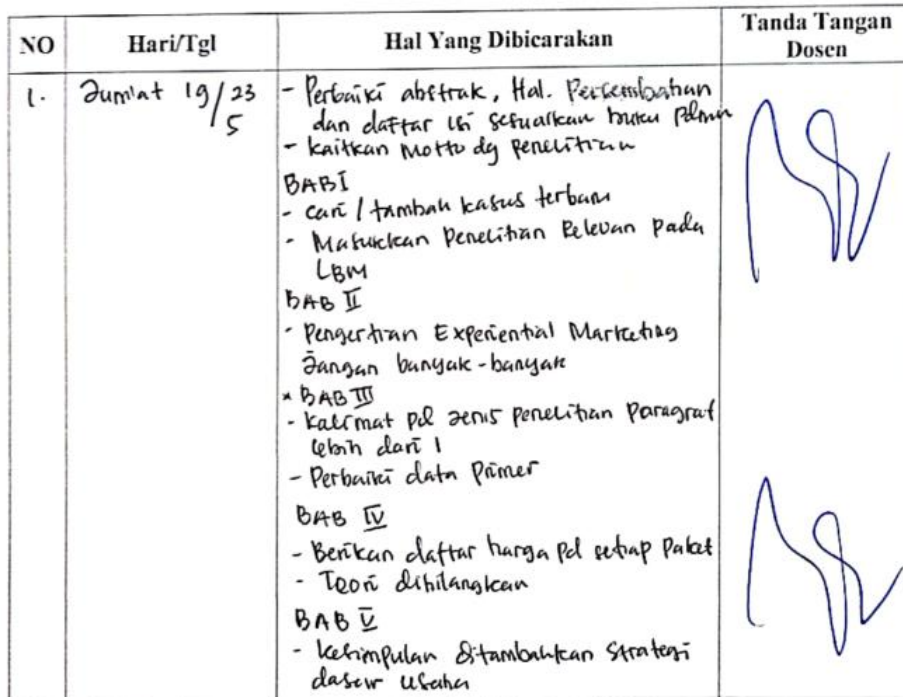 NO Hari/Tgl Hal Yang Dibicarakan Tanda Tangan Dosen
1. Jum'at 19/23 5
- Perbaiki abstrak, Hal. Persembahan
dan daftar isi sesuaikan buku pdmn
- kaitkan Motto dg penelitian
BAB I
- cari / tambah kasus terbaru
- Masukkan Penelitian Relevan pada
LBM
BAB II
- Pengertian Experiential Marketing
Jangan banyak-banyak
* BAB III
- Kalimat pd Jenis penelitian Paragraf
lebih dari 1
- Perbaiki data Primer
BAB IV
- Berikan daftar harga pd setiap Paket
- Teori dihilangkan
BAB V
- Kesimpulan ditambahkan Strategi
dasar usaha